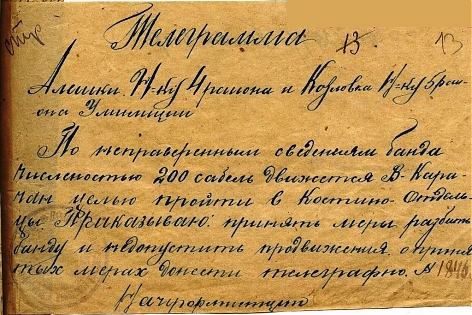 Телеграмма 13 13
Алешки Н-ку 4 района и Козловка Н-ку 5 рай-
она Умилиции
По неправеренным сведениям банда
численостью 200 сабель движется В-Кара-
чан целью пройти в Костино-Отдель-
цы Приказываю: принять меры разбить
банду и недопустить продвижения, о приня-
тых мерах донести телеграфно. № 1846
Начуормилиции